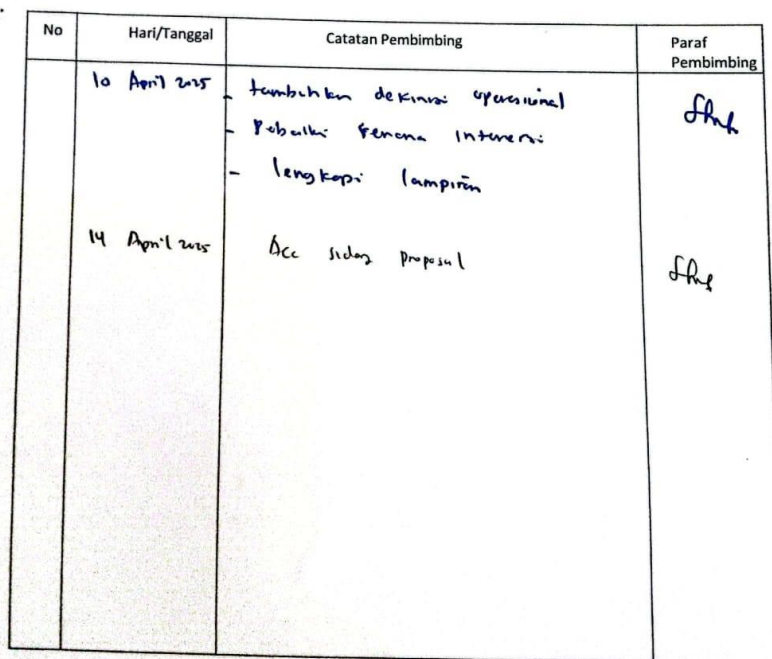 No Hari/Tanggal Catatan Pembimbing Paraf Pembimbing
10 April 2025 - tambahkan definisi operasional
- Perbaiki rencana intervensi
- lengkapi lampiran
14 April 2025 Acc sidang proposal